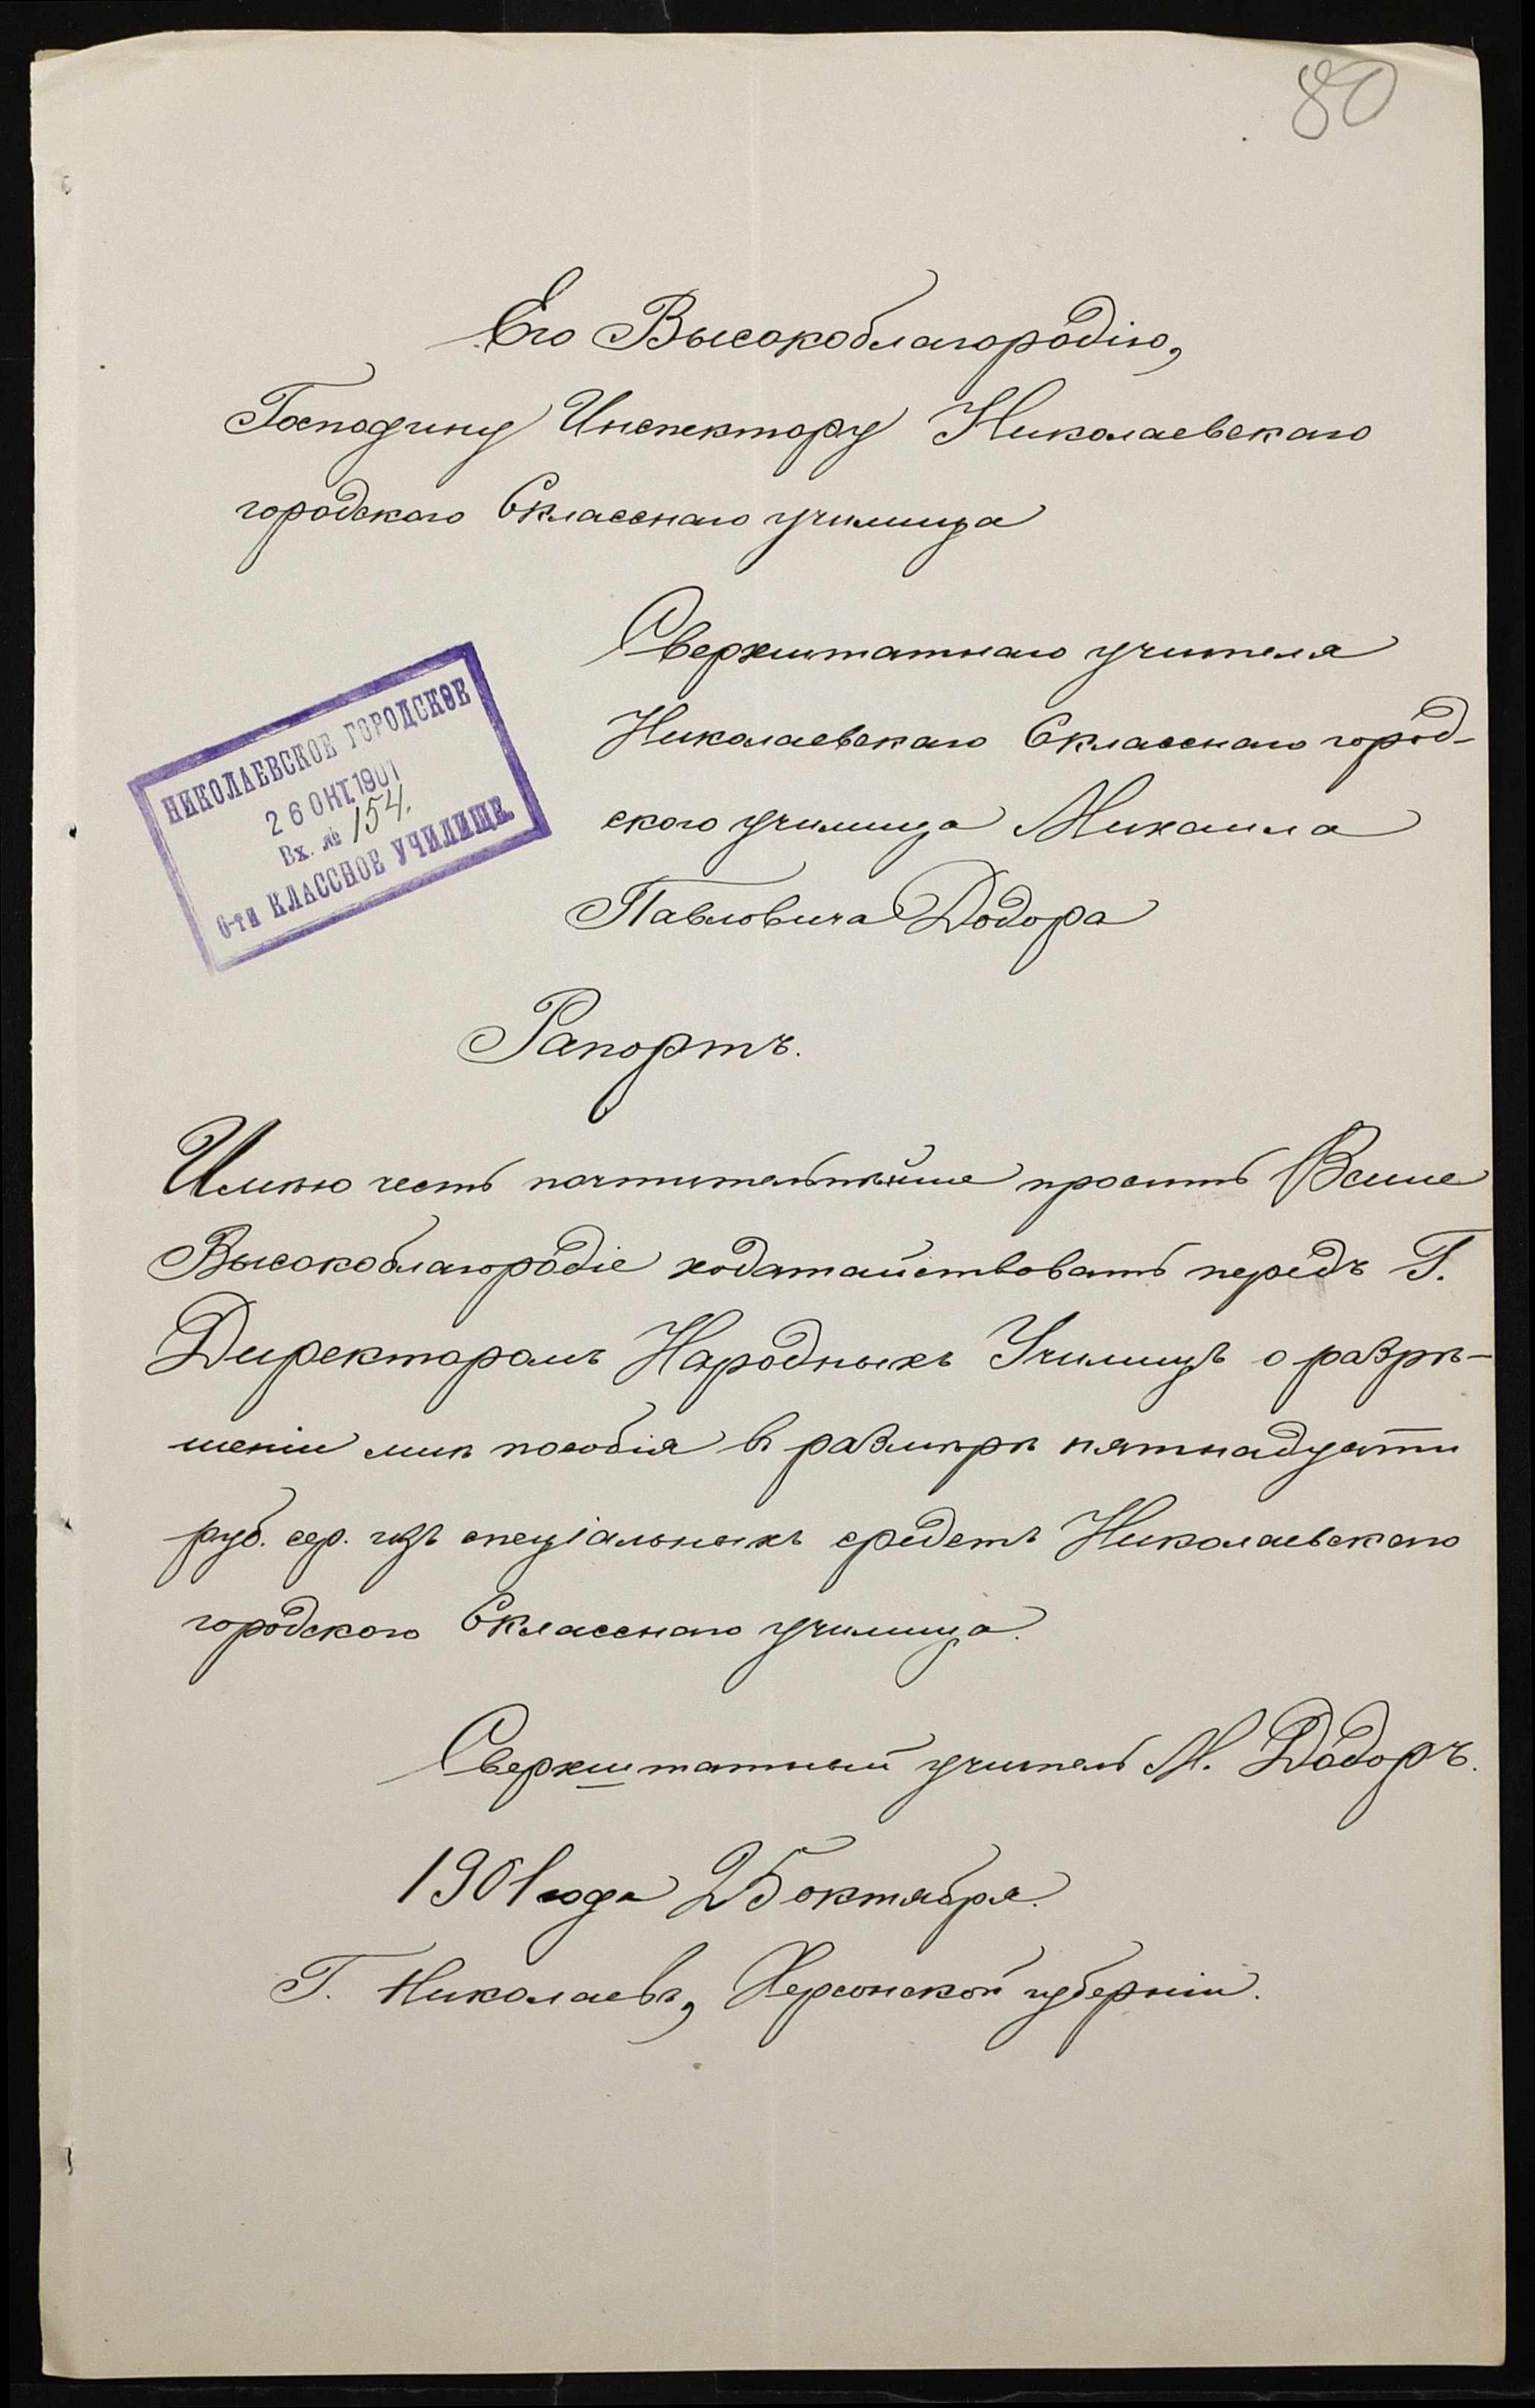 80
Его Высокоблагородію,
Господину Инспектору Николаевскаго
городского 6класснаго училища
Сверхштатнаго учителя
Николаевскаго 6класснаго город-
ского училища Михаила
Павловича Додора
НИКОЛАЕВСКОЕ ГОРОДСКОЕ
26 ОКТ. 1901
Вх. № 154.
6-ти КЛАССНОЕ УЧИЛИЩЕ.
Рапортъ.
Имѣю честь почтительнѣйше просить Ваше
Высокоблагородіе ходатайствовать передъ Г.
Директоромъ Народныхъ Училищъ о разрѣ-
шеніи мнѣ пособія въ размѣрѣ пятнадцати
руб. сер. изъ спеціальныхъ средствъ Николаевскаго
городского 6класснаго училища.
Сверхштатный учитель М. Додоръ.
1901 года 25 октября.
Г. Николаевъ, Херсонской губерніи.